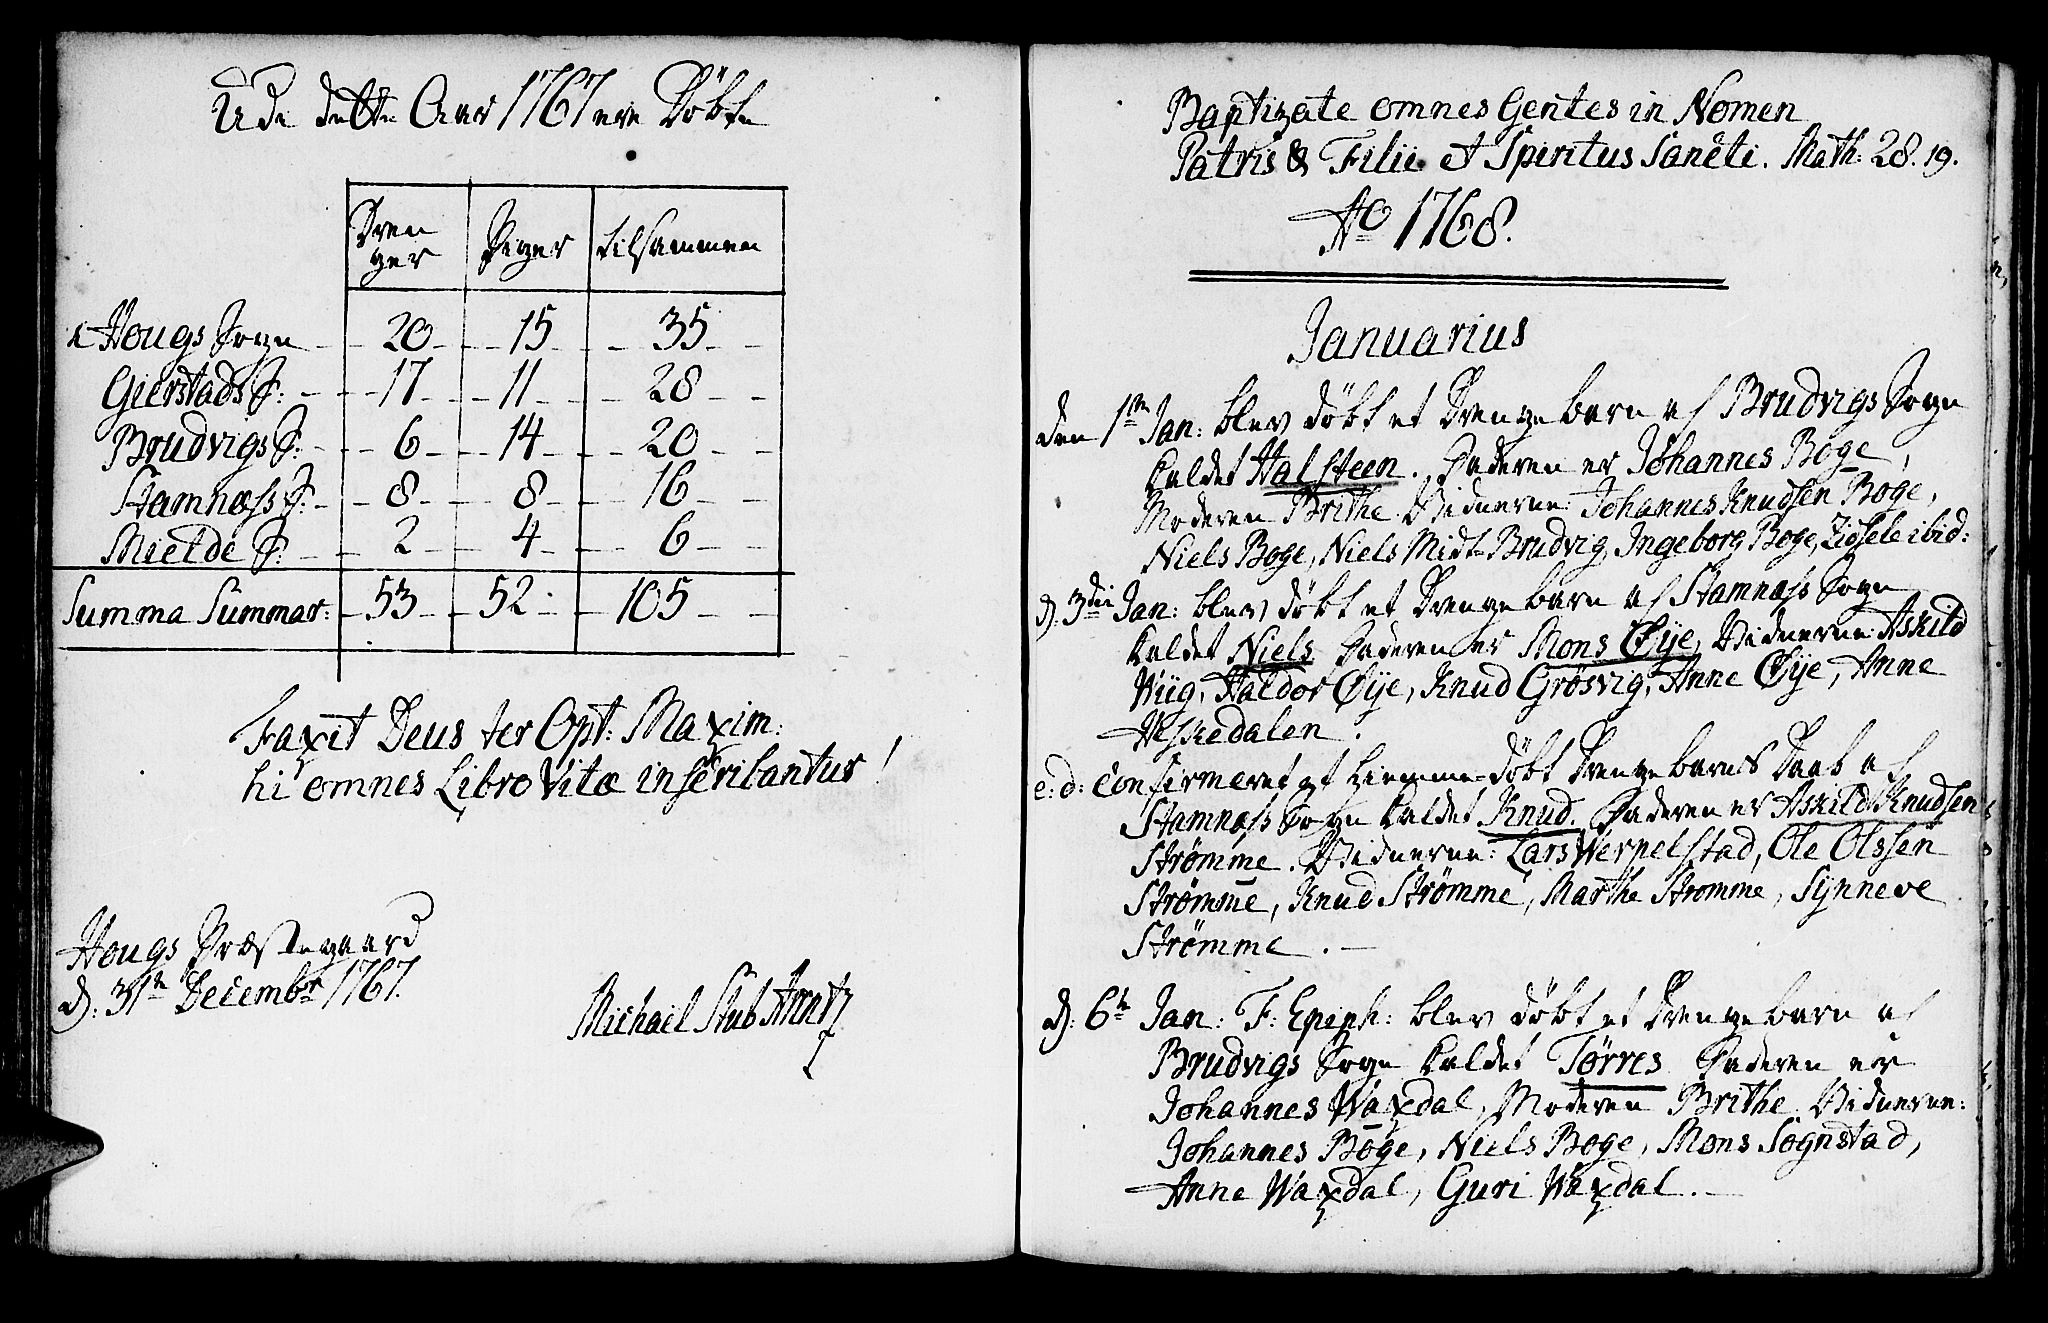 Udi dette Aar 1767 ere Døbte
Dren
ger Piger tilsammen
i Hougs Sogn 20 15 35
Gierstads S: 17 11 28
Brudvigs S: 6 14 20
Stamnæss S: 8 8 16
Mielde S: 2 4 6
Summa Summar: 53 52 105
Faxit Deus ter Opt: Maxim:
hi omnes Libro Vitæ inscribantur!
Hougs Præstegaard
d: 31te Decembr 1767.
Michael Stub Arentz
Baptizate omnes Gentes in Nomen
Patris & Filii et Spiritus Sancti. Math: 28. 19.
Ao 1768.
Januarius
den 1ste Jan: blev døbt et Drengebarn af Brudvigs Sogn
kaldet Halsteen. Faderen er Johannes Boge,
Moderen Brithe. Vidnerne: Johannes Knudsen Boge,
Niels Boge, Niels Midt-Brudvig, Ingeborg Boge, Zidsele ibid:
d: 3die Jan: blev døbt et Drengebarn af Stamnæss Sogn
kaldet Niels Faderen er Mons Øye, Vidnerne: Askild
Wiig, Haldor Øye, Knud Grøsvig, Anne Øye, Anne
Heskedalen.
e: d: Confirmeret et hiemme-døbt Drengebarns Daab af
Stamnæss Sogn kaldet Knud. Faderen er Askild Knudsen
Strømme. Vidnerne: Lars Werpelstad, Ole Olssen
Strømme, Knud Strømme, Marthe Stromme, Synneve
Strømme.
d: 6te Jan: F: Epiph: blev døbt et Drengebarn af
Brudvigs Sogn kaldet Tørres Faderen er
Johannes Waxdal, Moderen Brithe. Vidnerne:
Johannes Boge, Niels Boge, Mons Sognstad,
Anne Waxdal, Guri Waxdal.